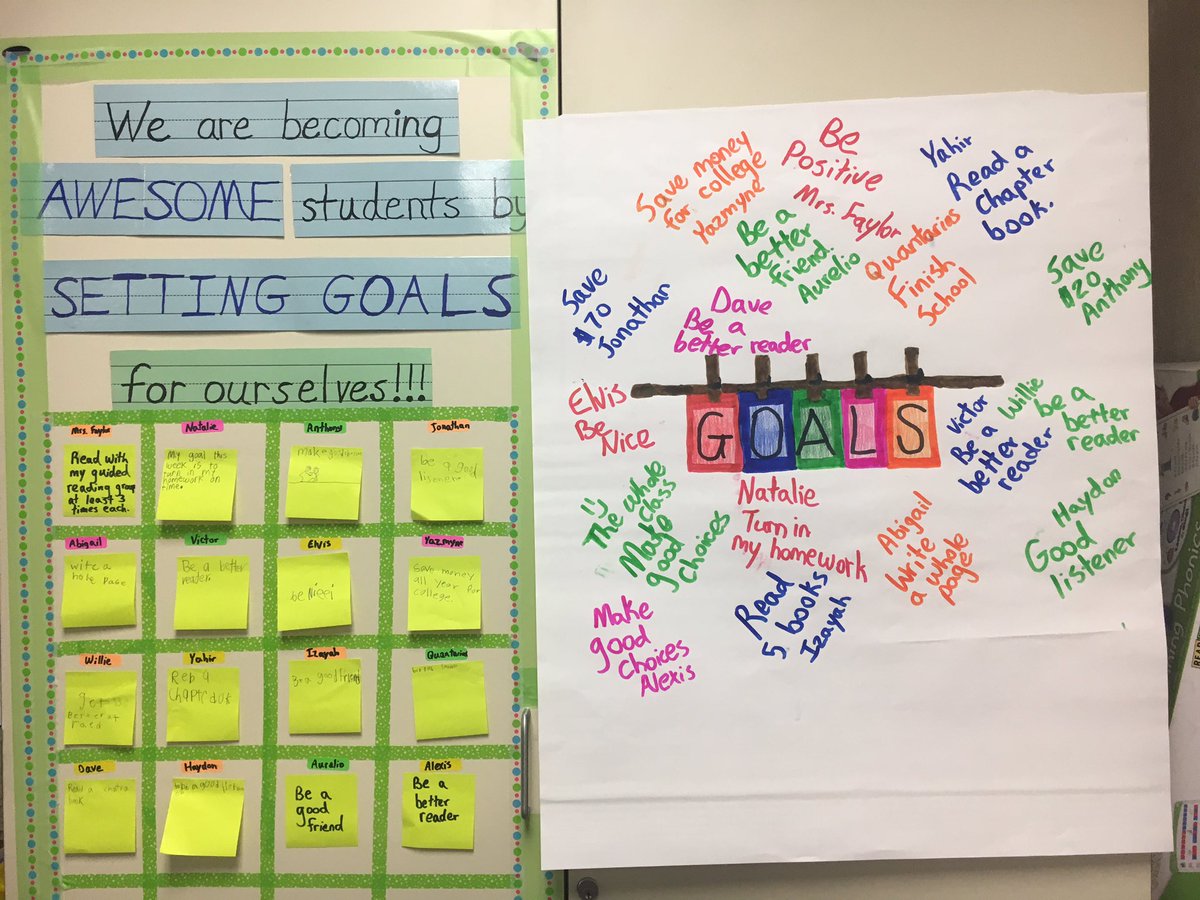 We are becoming
AWESOME students by
SETTING GOALS
for ourselves!!!
Mrs. Faylor
Read with
my guided
reading group
at least 3
times each.
Natalie
My goal this
week is to
turn in my
homework on
time.
Anthony
make
Jonathan
be a good
listener
Abigail
write a
hole Page
Victor
Be a better
reader.
Elvis
be
Yazmyne
Save money
all year for
college.
Willie
get
Yahir
Izayah
a good friend
Quantarius
Dave
Read a
book
Haydon
a good
Aurelio
Be a
good
friend
Alexis
Be a
better
reader
Save money
for college
Yazmyne
Be
Positive
Mrs. Faylor
Yahir
Read a
Chapter
book.
Be a
better
friend.
Aurelio
Quantarius
Finish
School
Save
$20
Anthony
Save
$70
Jonathan
Dave
Be a
better reader
Elvis
Be
Nice
GOALS
Victor
Be a
better
reader
Willie
be a
better
reader
The whole
class
Make
good
choices
Natalie
Turn in
my homework
Abigail
Write
a whole
page
Haydon
Good
listener
Make
good
choices
Alexis
Read
5 books
Izayah